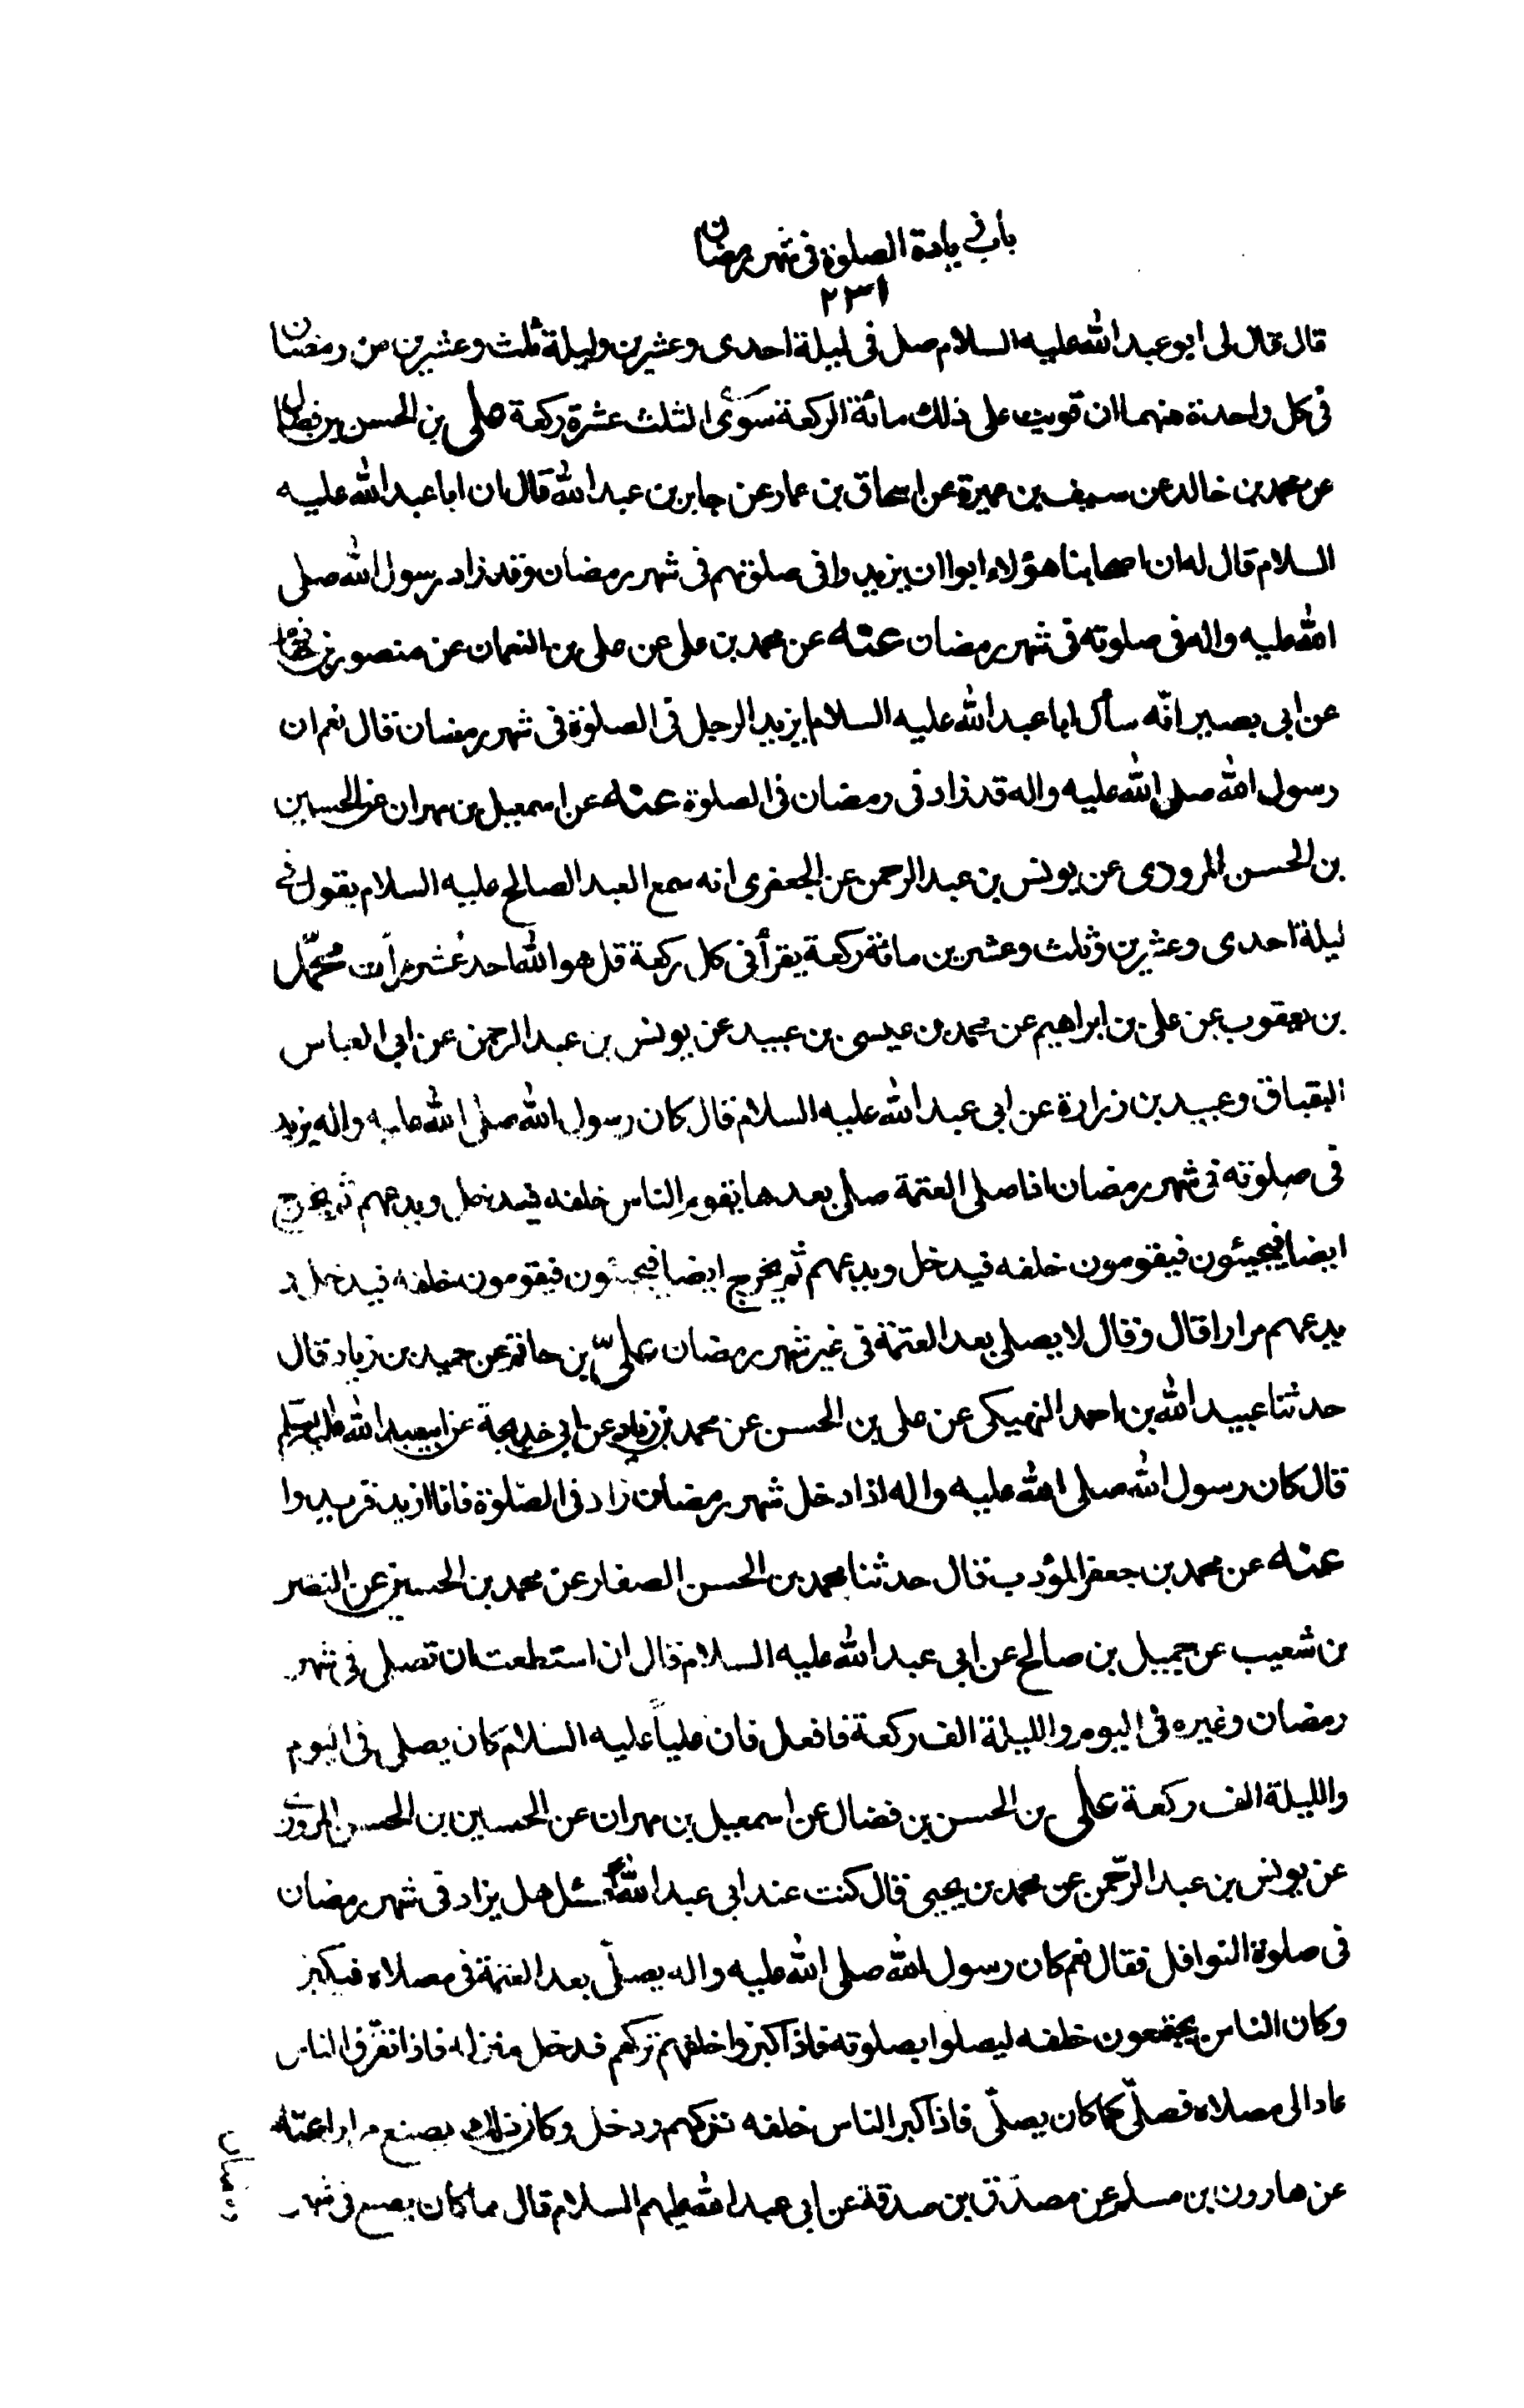 باب زيادة الصلوة فى شهر رمضان
٢٣١
قال قال لى ابو عبد الله عليه السلام صل فى ليلة احدى وعشرين وليلة ثلث وعشرين من رمضان
فى كل واحدة منهما ان قويت على ذلك مائة الركعة سوى الثلث عشرة ركعة على بن الحسن بن فضال
عن محمد بن خالد عن سيف بن عميرة عن اسحاق بن عمار عن جابر بن عبد الله قال ان ابا عبد الله عليه
السلام قال له ان اصحابنا هؤلاء ابوا ان يزيدوا فى صلوتهم فى شهر رمضان وقد زاد رسول الله صلى
الله عليه واله فى صلوته فى شهر رمضان عنه عن محمد بن على عن على بن النعمان عن منصور بن حازم
عن ابى بصير انّه سأل ابا عبد الله عليه السلام ايزيد الرجل فى الصلوة فى شهر رمضان قال نعم ان
رسول الله صلى الله عليه واله قد زاد فى رمضان فى الصلوة عنه عن اسمعيل بن مهران عن الحسين
بن الحسن المروزى عن يونس بن عبد الرحمن عن الجعفرى انه سمع العبد الصالح عليه السلام يقول فى
ليلة احدى وعشرين وثلث وعشرين مائة ركعة يقرأ فى كل ركعة قل هو الله احد عشر مرات محمّد
بن يعقوب عن على بن ابراهيم عن محمد بن عيسى بن عبيد عن يونس بن عبد الرحمن عن ابى العباس
البقباق وعبيد بن زرارة عن ابى عبد الله عليه السلام قال كان رسول الله صلى الله عليه واله يزيد
فى صلوته فى شهر رمضان اذا صلى العتمة صلى بعدها يقوم الناس خلفه فيدخل ويدعهم ثم يخرج
ايضا فيجيئون فيقومون خلفه فيدخل ويدعهم ثم يخرج ايضا فيجيئون فيقومون خلفه فيدخل و
يدعهم مرارا قال وقال لا يصلى بعد العتمة فى غير شهر رمضان علىّ بن حاتم عن حميد بن زياد قال
حدثنا عبيد الله بن احمد النهيكى عن على بن الحسن عن محمد بن زياد عن ابى خديجة عن ابيعبد الله عليه السلم
قال كان رسول الله صلى الله عليه واله اذا دخل شهر رمضان زاد فى الصّلوة فانا ازيد فزيدوا
عنه عن محمد بن جعفر المؤدب قال حدثنا محمد بن الحسن الصفار عن محمد بن الحسين عن النضر
بن شعيب عن جميل بن صالح عن ابى عبد الله عليه السلام قال ان استطعت ان تصلى فى شهر
رمضان وغيره فى اليوم والليلة الف ركعة فافعل فان علياً عليه السلام كان يصلى فى اليوم
والليلة الف ركعة على بن الحسن بن فضال عن اسمعيل بن مهران عن الحسين بن الحسن المروزى
عن يونس بن عبد الرّحمن عن محمد بن يحيى قال كنت عند ابى عبد الله فسئل هل يزاد فى شهر رمضان
فى صلوة النوافل فقال نعم كان رسول الله صلى الله عليه واله يصلّى بعد العتمة فى مصلاه فيكثر
وكان الناس يجتمعون خلفه ليصلوا بصلوته فاذا كثروا خلفه تركهم فدخل منزله فاذا تفرّق الناس
عاد الى مصلاه فصلّى كما كان يصلّى فاذا كثر الناس خلفه تركهم ودخل وكان ذلك يصنع مرارا عنه
عن هارون بن مسلم عن مصدق بن صدقة عن ابى عبد الله عليهم السلام قال مما كان يصنع فى شهر
رمضان